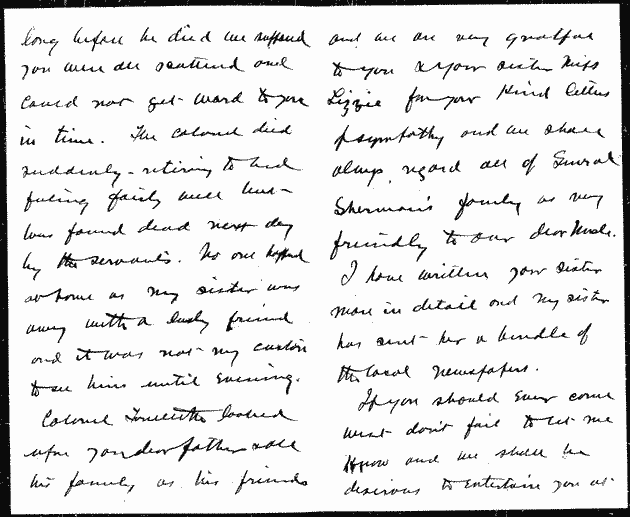 long before he died we supposed
you were all scattered and
could not get word to you
in time. The Colonel died
suddenly - retiring to bed
feeling fairly well but
was found dead next day
by the servants. No one happened
so home as my sister was
away with a lady friend
and it was not my custom
to see him until evening.
Colonel looked
upon your dear father & all
his family as his friends
and we are very grateful
to you & your sister Miss
Lizzie for your Kind letters
of sympathy and we shall
always regard all of General
Sherman's family as very
friendly to our dear Uncle.
I have written your sister
more in detail and my sister
has sent her a bundle of
the local newspapers.
If you should ever come
West don't fail to let me
Know and we shall be
desirous to entertain you at